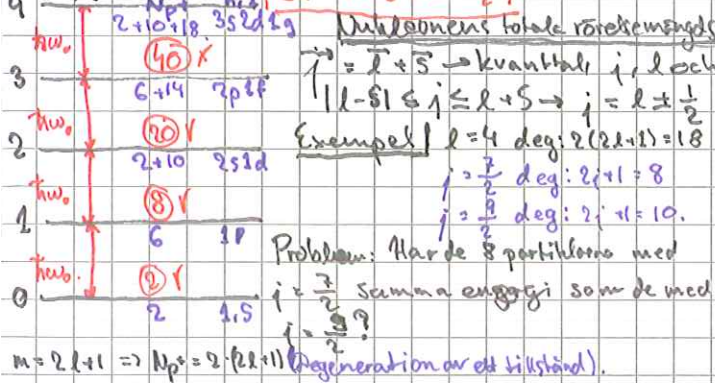 4 Np+
2+10+18 3s2d1g
ħω₀ 40 x
3
6+14 2p1f
ħω₀ 20 √
2
2+10 2s1d
ħω₀ 8 √
1
6 1p
ħω₀. 2 √
0
2 1,s
m = 2l+1 => Np+ = 2·(2l+1) (Degeneration av ett tillstånd).
Nukleonens totala rörelsemängds
j = l + s → kvanttal, j, l och
|l-s| ≤ j ≤ l+s → j = l ± 1/2
Exempel| l = 4 deg: 2(2l+1) = 18
j = 7/2 deg: 2j+1 = 8
j = 9/2 deg: 2j+1 = 10.
Problem: Har de 8 partiklarna med
j = 7/2 samma engergi som de med
j = 9/2?